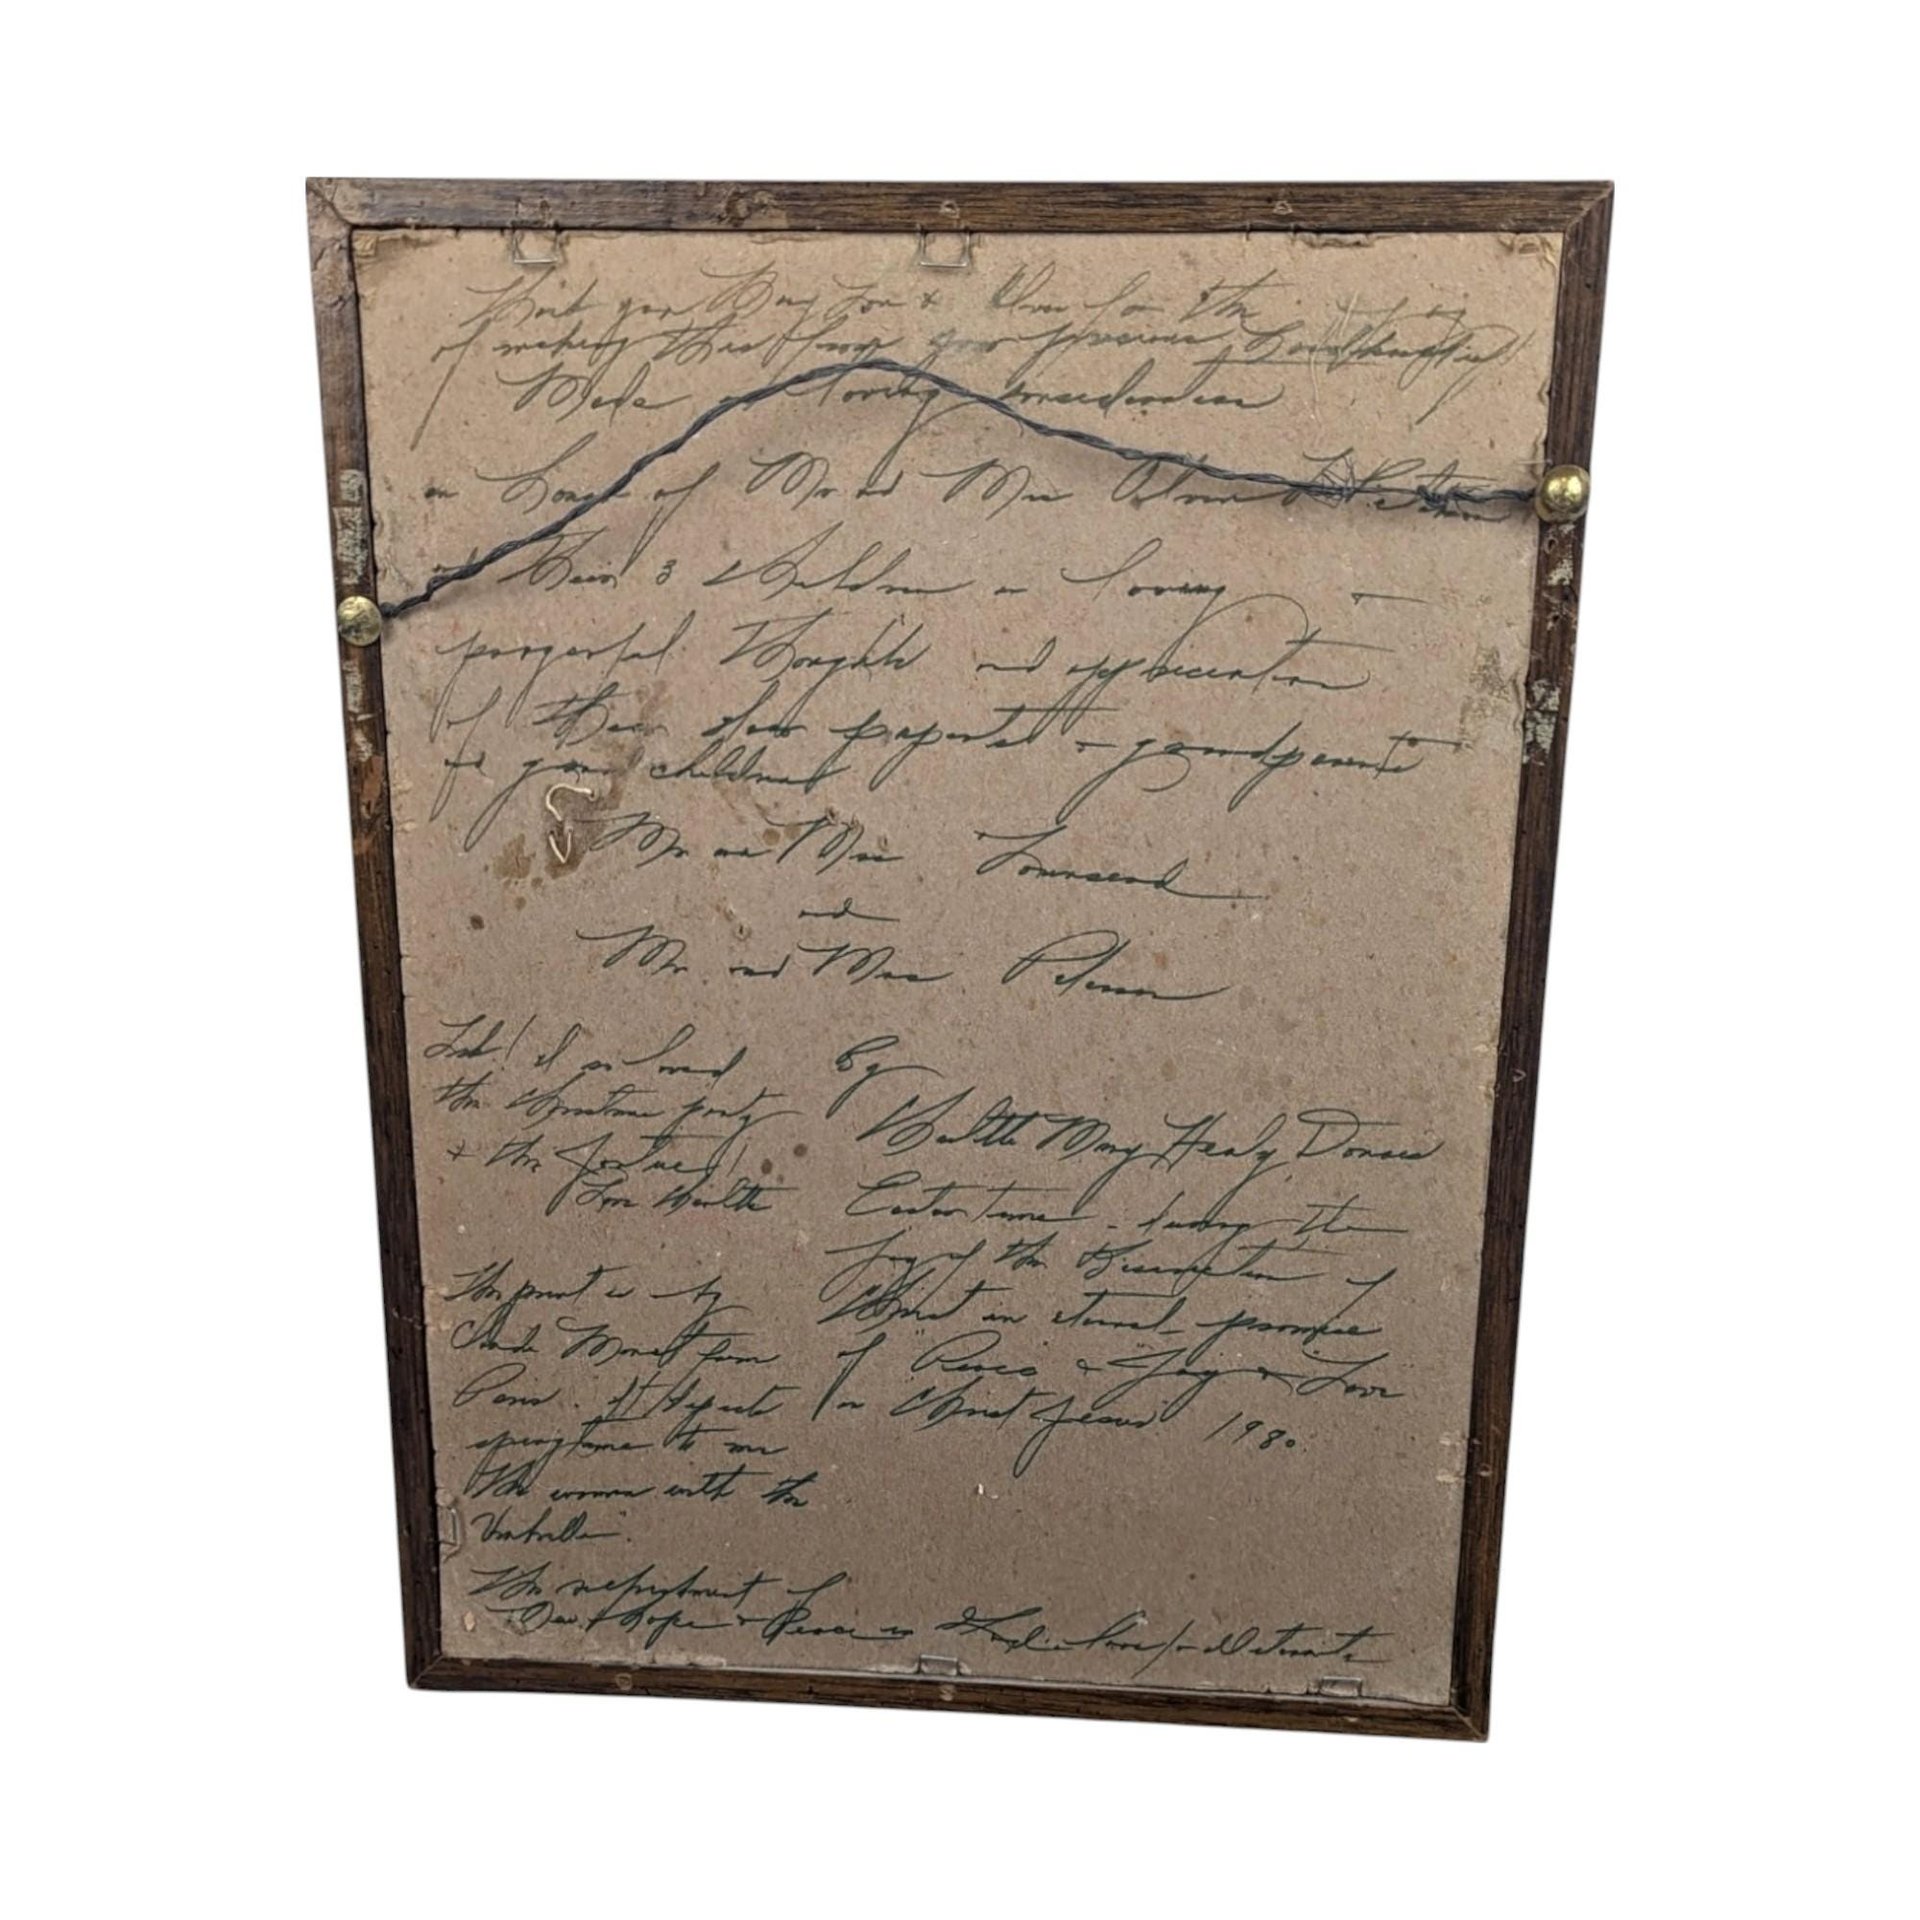 Thank you Mary Lou & for the joy
of making this from your precious
Made in loving consideration
in honor of Mr. and Mrs. Peterson
and their 3 children in loving +
prayerful thoughts and appreciation
of their dear parents + grandparents
of your children
Mr and Mrs Townsend
and
Mr. and Mrs. Peterson
By
Mary Healy
Easter time - during the
joy of the Resurrection of
Christ in eternal promise
of "Peace" & "Joy" & "Love"
in "Christ Jesus" 1980.
! I so loved
the Christmas party
+ the !
Love
The print is by
Claude Monet from
Paris. It depicts
springtime to me
The woman with the
Umbrella".
The of
Hope + Peace is